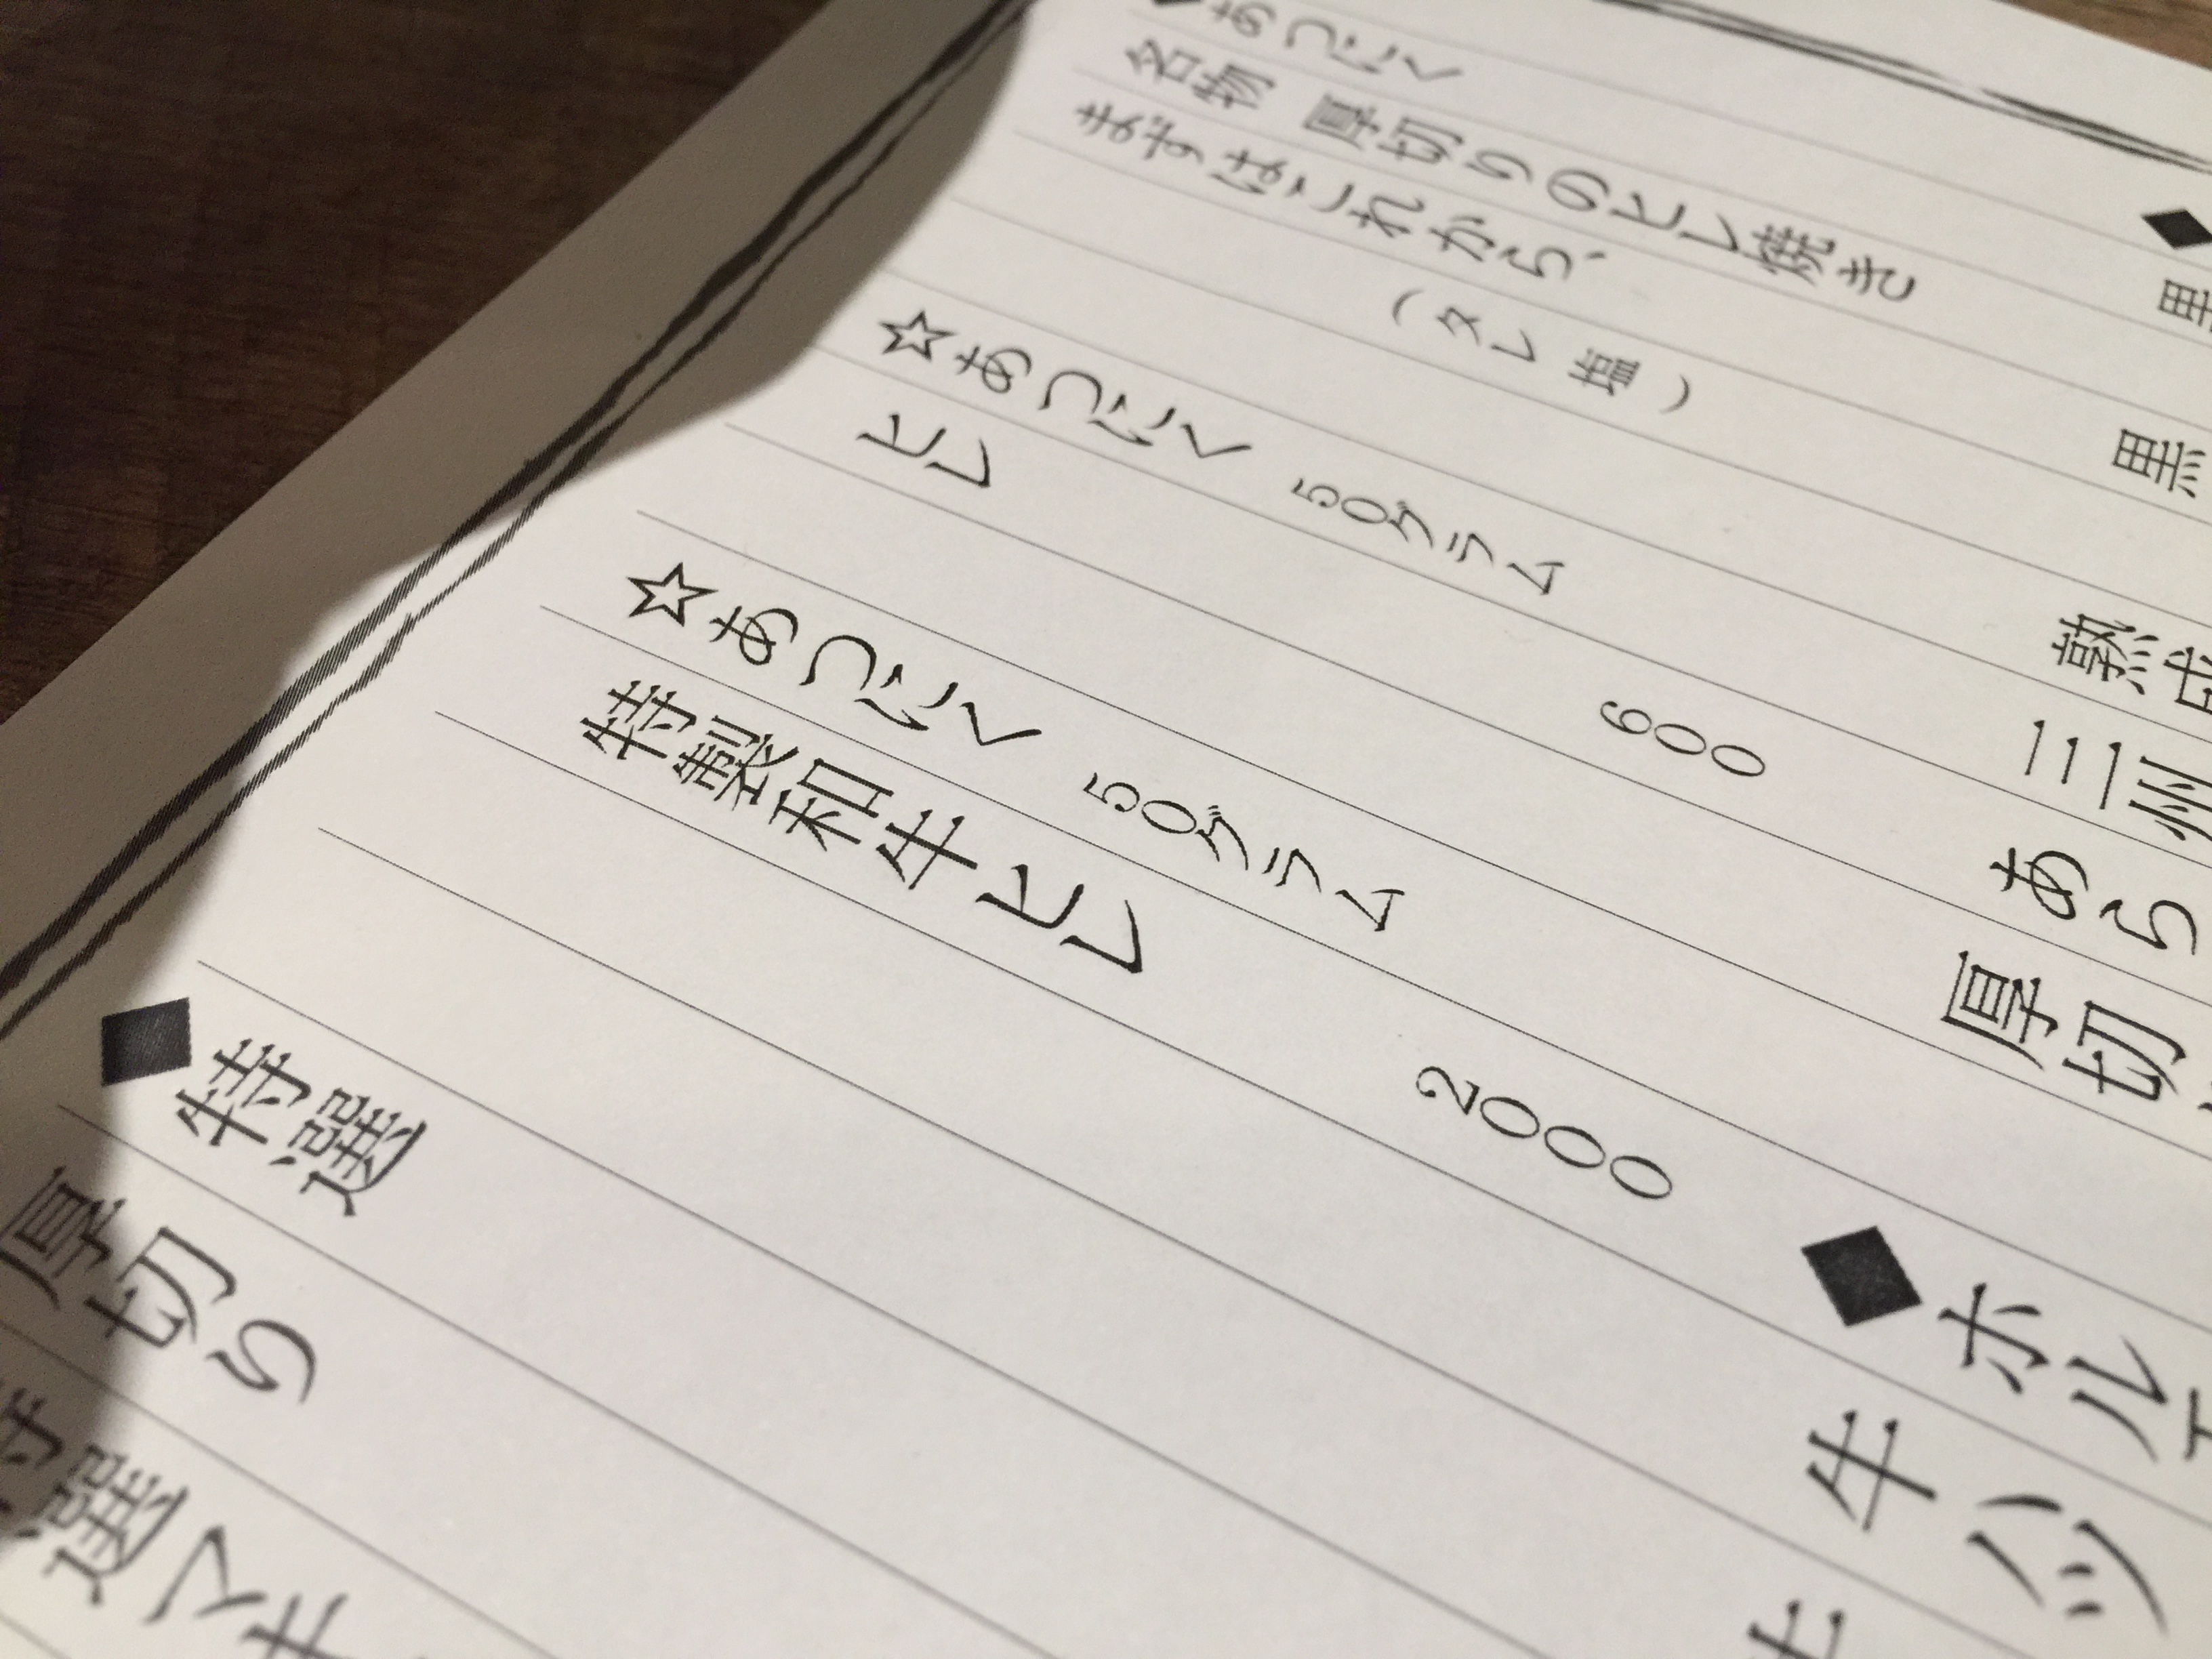 ◆あつにく
名物 厚切りのヒレ焼き
まずはこれから、
（タレ 塩）
☆あつにく 50グラム
ヒレ
600
☆あつにく 50グラム
特製和牛ヒレ
2000
◆特選
厚切り
特選マキ
◆
黒
黒
熟成
三州
あら
厚切
◆ホル
牛ハツ
牛